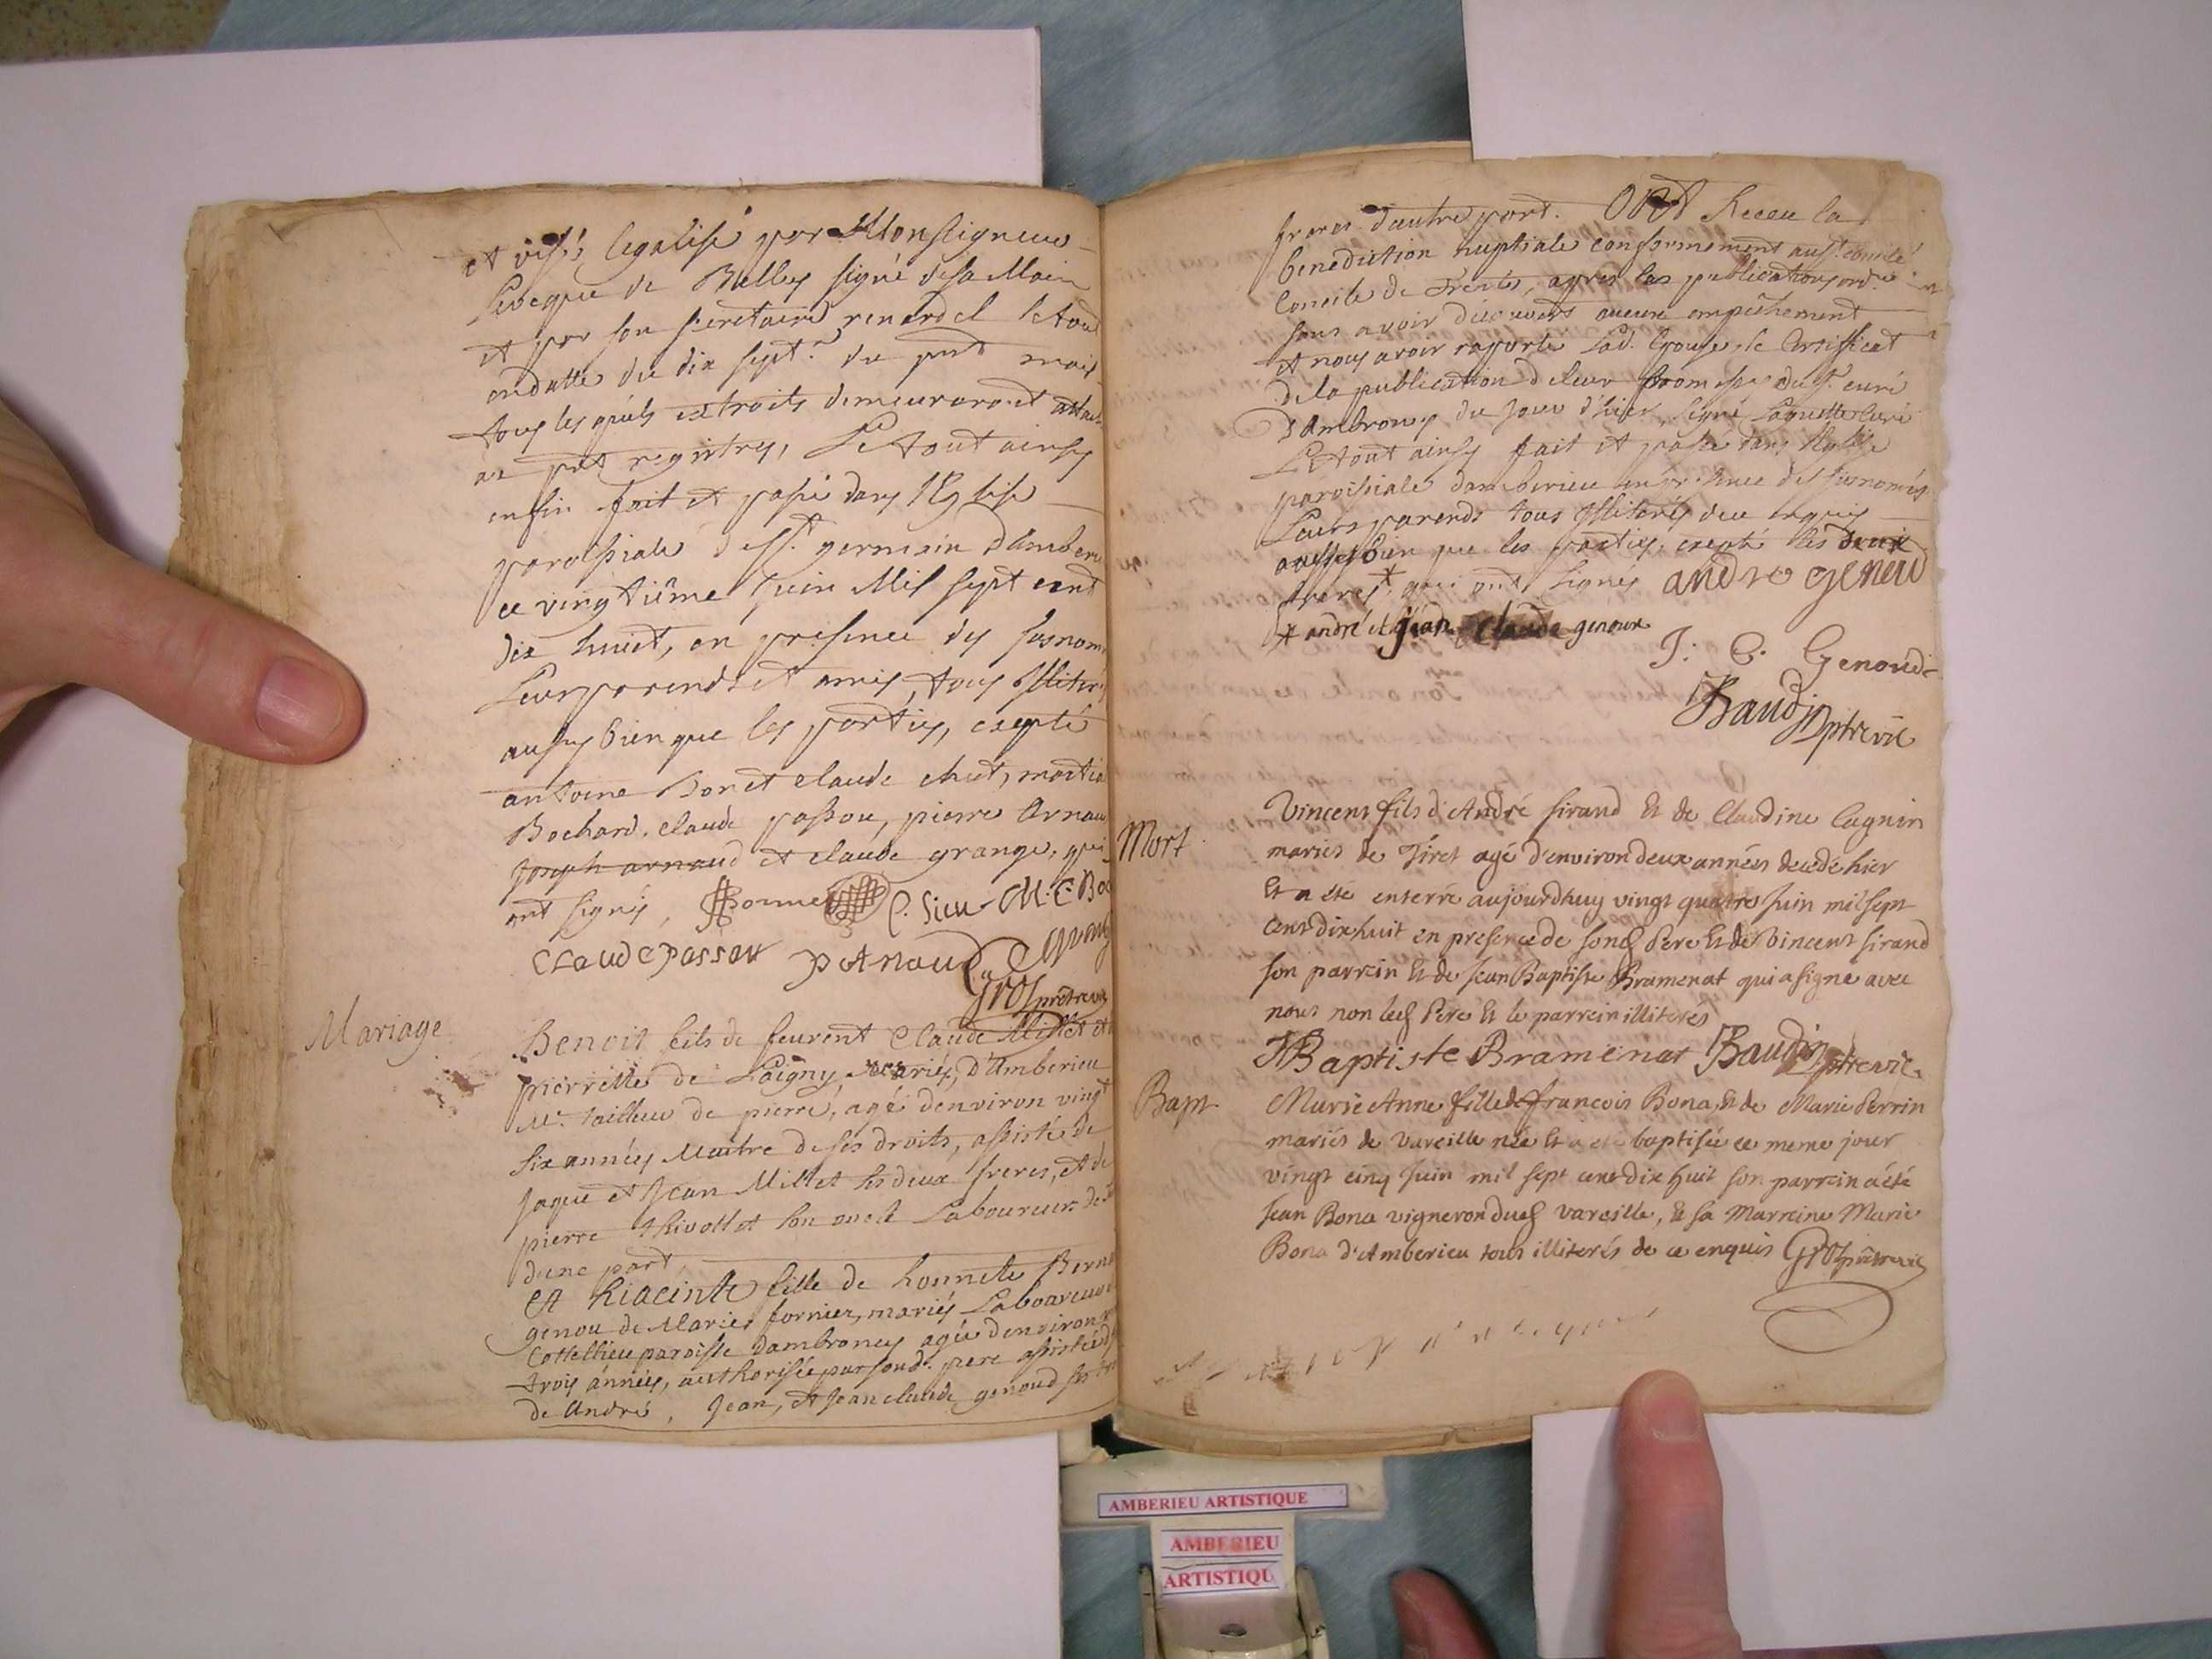 et visés legalisé par Monseigneur
L'eveque de Belley signé de sa Main
et par son secretaire renardel le tout
en datte du dix sept.e du pnt mois
tous lesquels extraits demeureront
au pnt registres, Le tout ainsy
enfin fait et passé dans l'Eglise
paroissiale de St. germain d'Amberi
ce vingtiême Juin Mil sept cent
dix huict, en presence des susnom
Leurs parends et amis, tous illiter
aussy bien que les parties, exepté
antoine Bonet claude chut, martin
Bochard, claude passou, pierre Arnau
Joseph arnaud et claude grange, qui
ont signés, Bonnet C. Sieu M. C. Bo
Claude passou p Arnaud
Gros pretre vic
Mariage
Benoit fils de feurent Claude Millet et
pierrette de Laigny, mariés, d'Amberieu
Mr. tailleur de pierre, agé denviron vingt
six années Maitre de ses droits, assisté de
Jaque et Jean Millet ses deux freres, et de
pierre thivollet son oncle Laboureur de
dune part,
et hiacinte fille de honnete Berna
genou de Marie fornier, mariés Laboureur
Cottellieu paroisse dambroney agée denviron
trois années, authorisée par sond. pere assistée d
de André, Jean, et Jean claude genoud ses
freres d'autre part. ONT Receu la
benediction nuptiale conformement au st. concile
Concile de Trente, apres les publications ord.res
sans avoir decouvert aucun empêchement
et nous avoir raporté Lad. Epouse, le Certificat
de la publication de leur promesse du Sr. curé
d'Ambroney du jour d'hier, signé Laguette curé
Le tout ainsy fait et passé dans l'Eglise
paroissiale damberieu en presence des susnomés
Leurs parends tous illiterés de ce enquis
aussy bien que les parties, exepté les deux
freres + qui ont signés andre Genou
+ andré et jean claude genoux
J: C: Genoud
Baudin ptre vic
Mort
Vincent fils d'André sirand Et de Claudine Cagnin
mariés de Tiret agé d'environ deux années decedé hier
Et a eté enterré aujourdhuy vingt quatre Juin mil sept
cent dix huit en presence de sond Pere Et de Vincent sirand
son parrein Et de Jean Baptiste Bramenat qui a signé avec
nous non led Pere Et le parrein illiterés
JBaptiste Bramenat Baudin ptre vic.
Bapt.
Marie Anne fille de francois Bona, Et de Marie Perrin
mariés de Vareille née Et a eté baptisée ce meme jour
vingt cinq Juin mil sept cent dix huit son parrein a été
Jean Bona vigneron dud vareille, Et sa Marreine Marie
Bona d'Amberieu tous illiterés de ce enquis Gros pretre vic
AMBERIEU ARTISTIQUE
AMBERIEU
ARTISTIQU